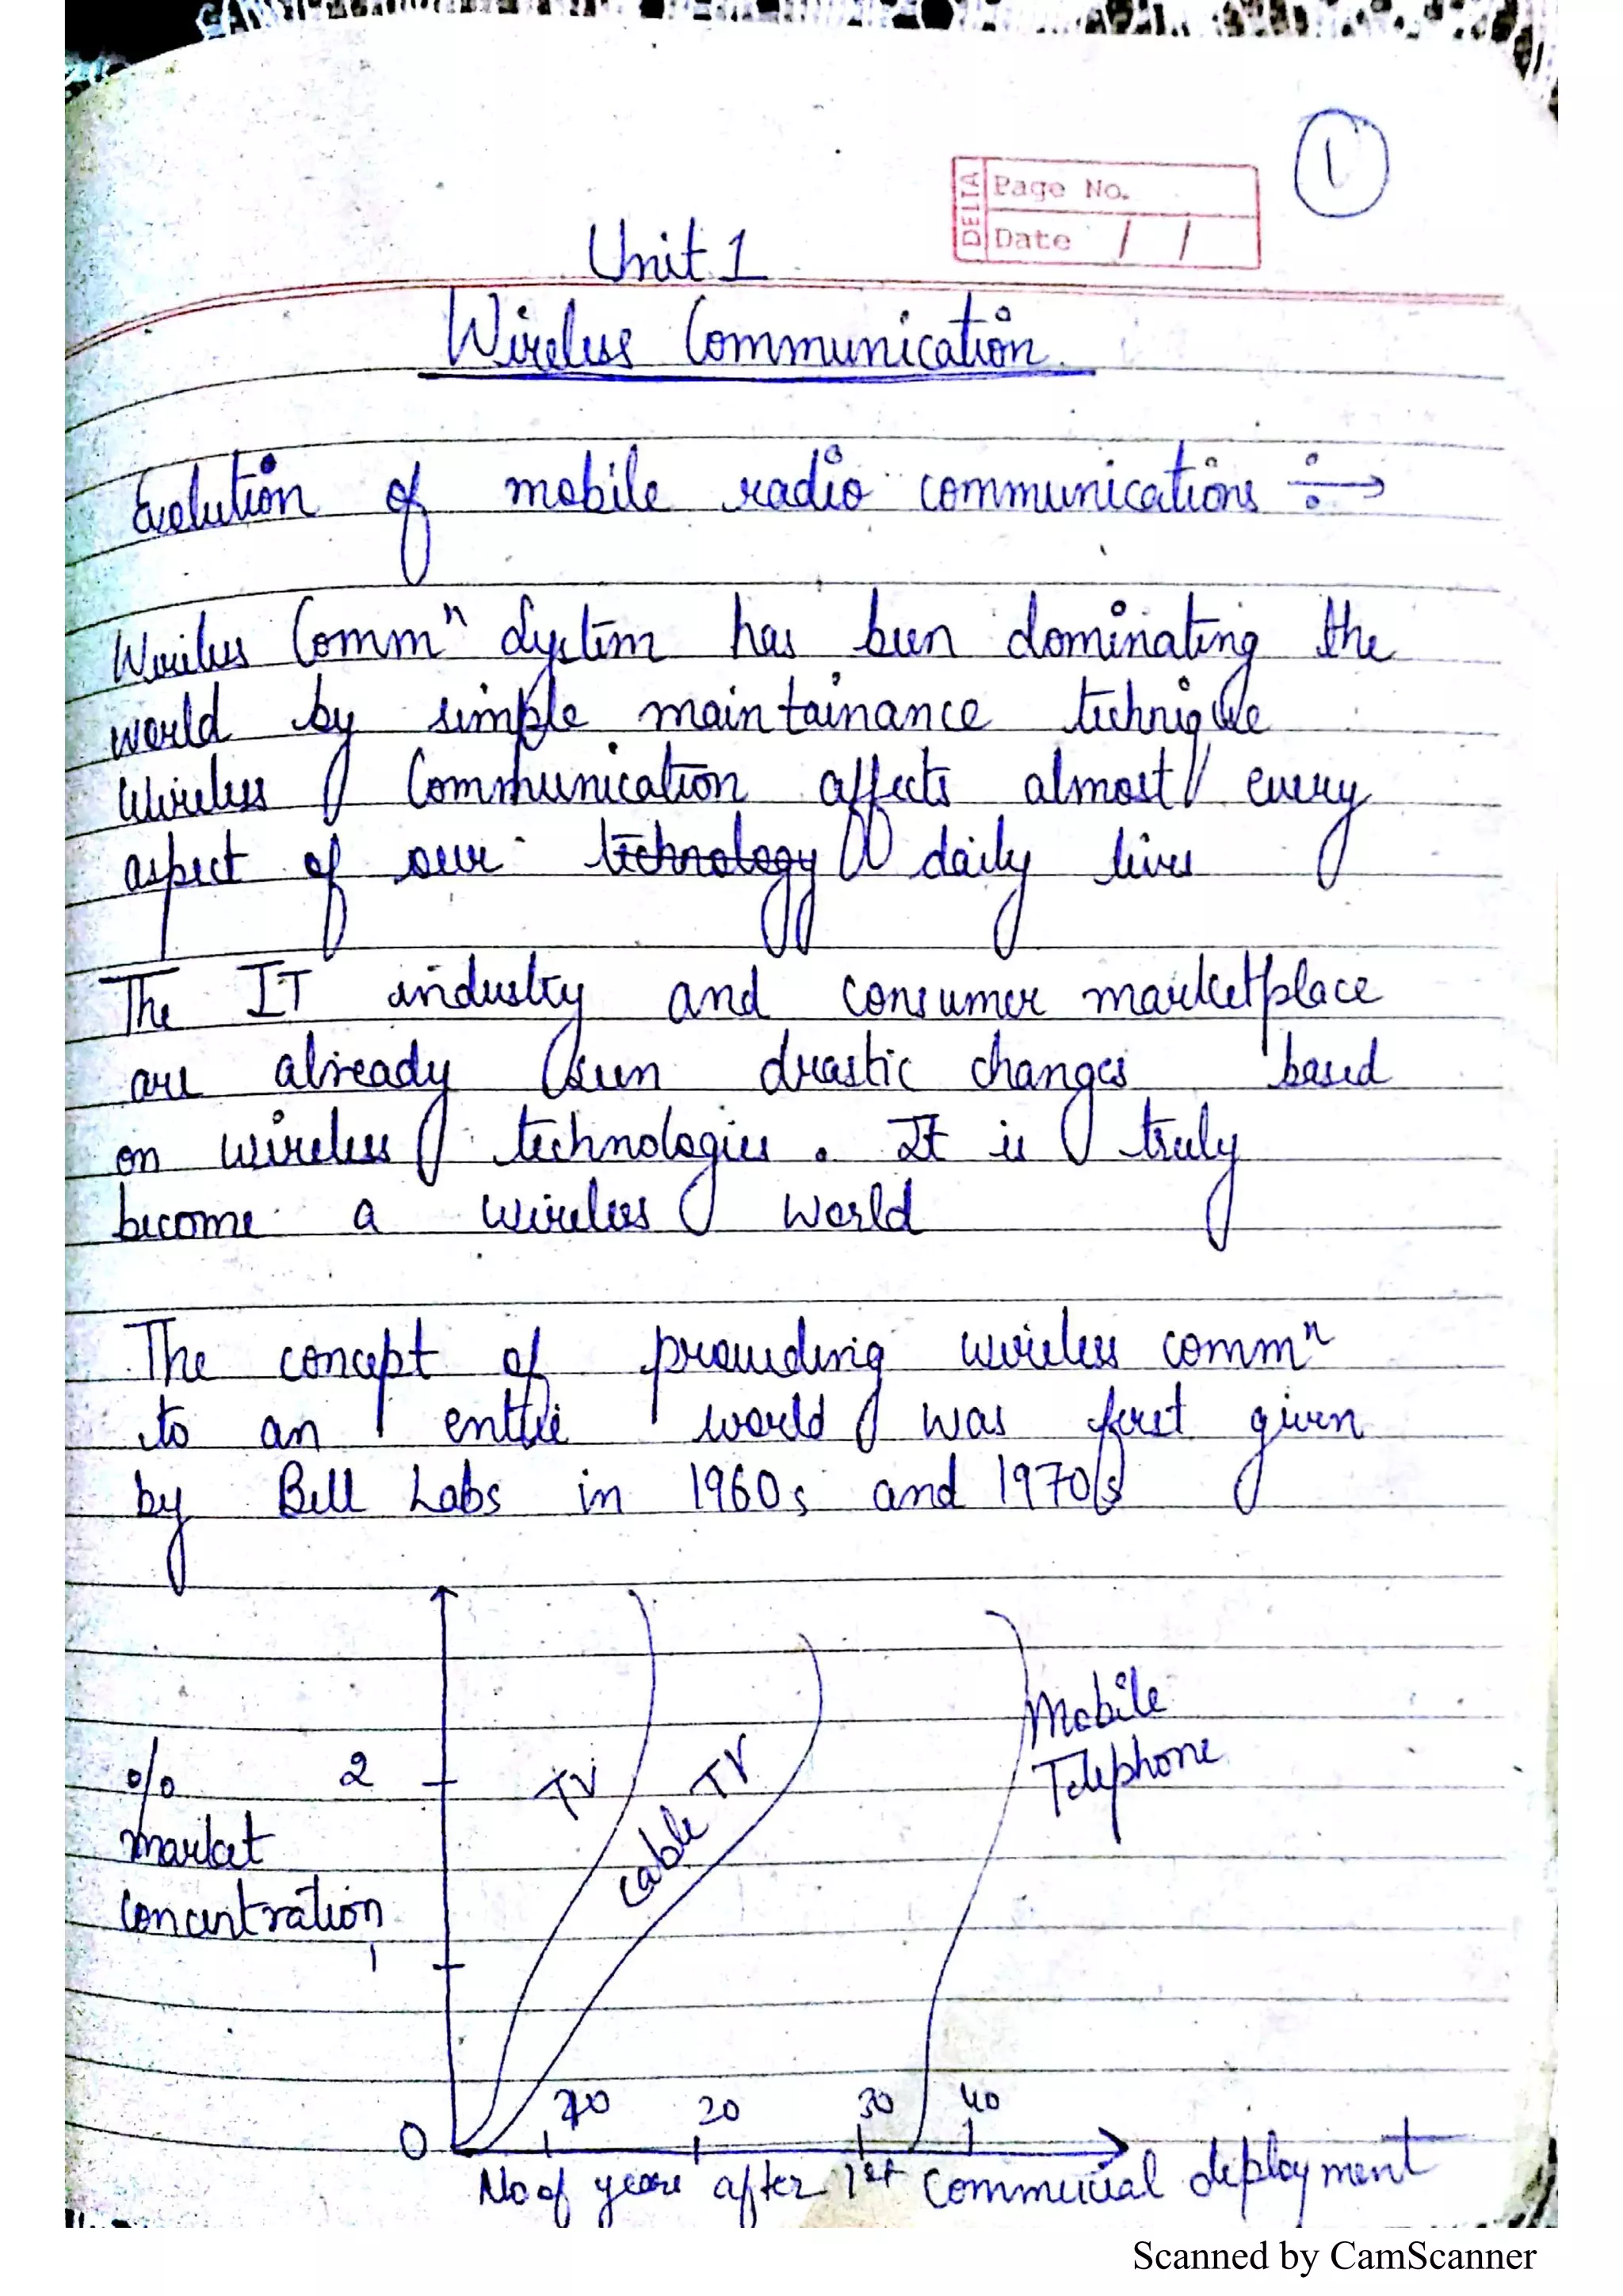 1
DELTA
Page No.
Date / /
Unit 1
Wireless Communication
Evolution of mobile radio communications ÷→
Wireless Commⁿ System has been dominating the
world by simple maintainance technique
Wireless Communication affects almost every
aspect of our technology daily lives
The IT industry and consumer marketplace
are already seen drastic changes based
on wireless technologies. It is truly
become a wireless world
The concept of providing wireless commⁿ
to an entire world was first given
by Bell Labs in 1960s and 1970s
Mobile
Telephone
TV
Cable TV
% 2
market
concentration
1
0
10 20 30 40
No of years after 1st Commercial deployment
Scanned by CamScanner